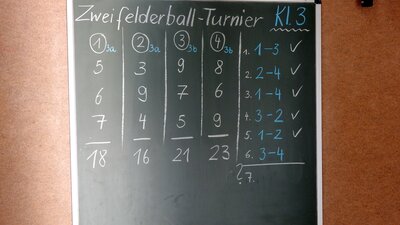 Zweifelderball-Turnier Kl. 3
1 3a 2 3a 3 3b 4 3b
5 3 9 8
6 9 7 6
7 4 5 9
18 16 21 23
1. 1-3 ✓
2. 2-4 ✓
3. 1-4 ✓
4. 3-2 ✓
5. 1-2 ✓
6. 3-4
? 7.